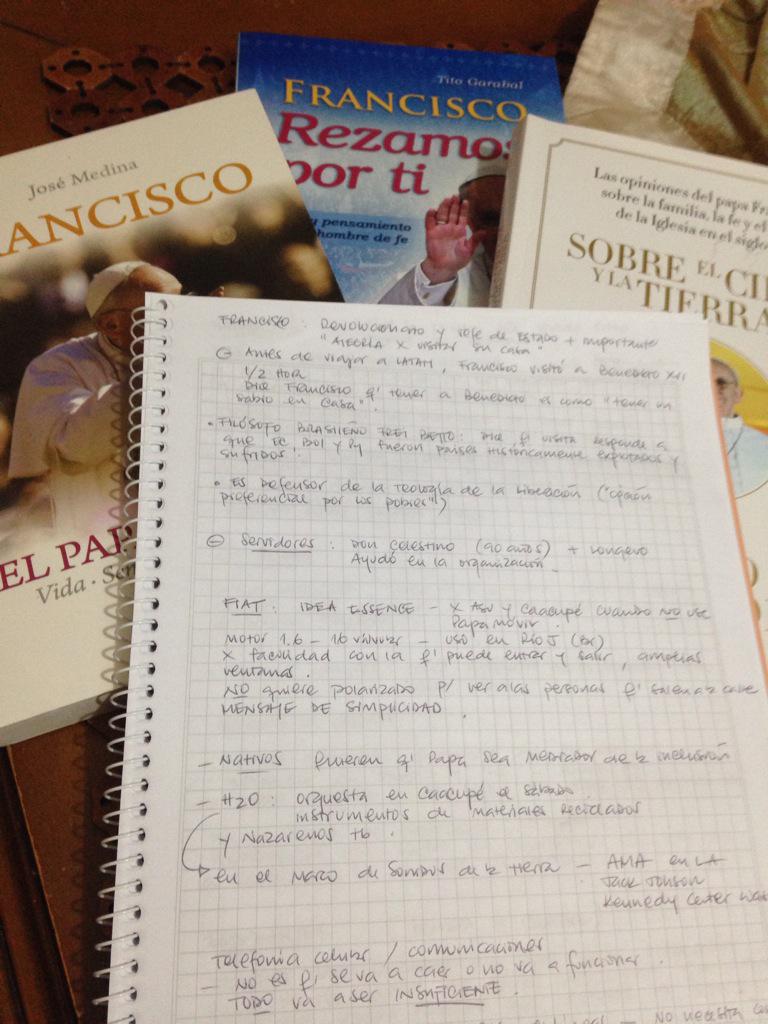 Tito Garabal
FRANCISCO
Rezamos
por ti
y pensamiento
hombre de fe
José Medina
ANCISCO
EL PAP
Vida · Ser
Las opiniones del papa Fra
sobre la familia, la fe y el
de la Iglesia en el siglo
SOBRE EL CIE
Y LA TIERRA
FRANCISCO : Revolucionario y Jefe de Estado + importante
"ALEGRÍA X visitar su casa"
Antes de viajar a LATAM, Francisco visitó a Benedicto XVI
1/2 Hora
Dice Francisco q' tener a Benedicto es como "tener un
sabio en casa".
• FILÓSOFO BRASILEÑO FREI BETTO: Dice q' visita responde a
que EC, Bol y Py fueron países históricamente explotados y
sufridos.
• Es Defensor de la Teología de la Liberación ("opción
preferencial por los pobres")
Servidores : Don Celestino (90 años) + longevo
Ayudó en la organización
FIAT : IDEA ESSENCE - X Asu y Caacupé cuando NO use
Papamóvil.
Motor 1.6 - 16 válvulas - usó en Río J (Br)
X facilidad con la q' puede entrar y salir, amplias
ventanas.
NO quiere polarizado p/ ver a las personas q' salen a la calle
MENSAJE DE SIMPLICIDAD.
- Nativos quieren q' Papa sea mediador de la inclusión
- H2O : orquesta en Caacupé el sábado.
instrumentos de materiales reciclados
y Nazarenos tb.
en el marco de Sonidos de la tierra - AMA en LA
Jack Jonson
Kennedy Center
Telefonía celular / comunicaciones
- NO es q' se va a caer o no va a funcionar.
TODO va a ser INSUFICIENTE.
- NO necesita